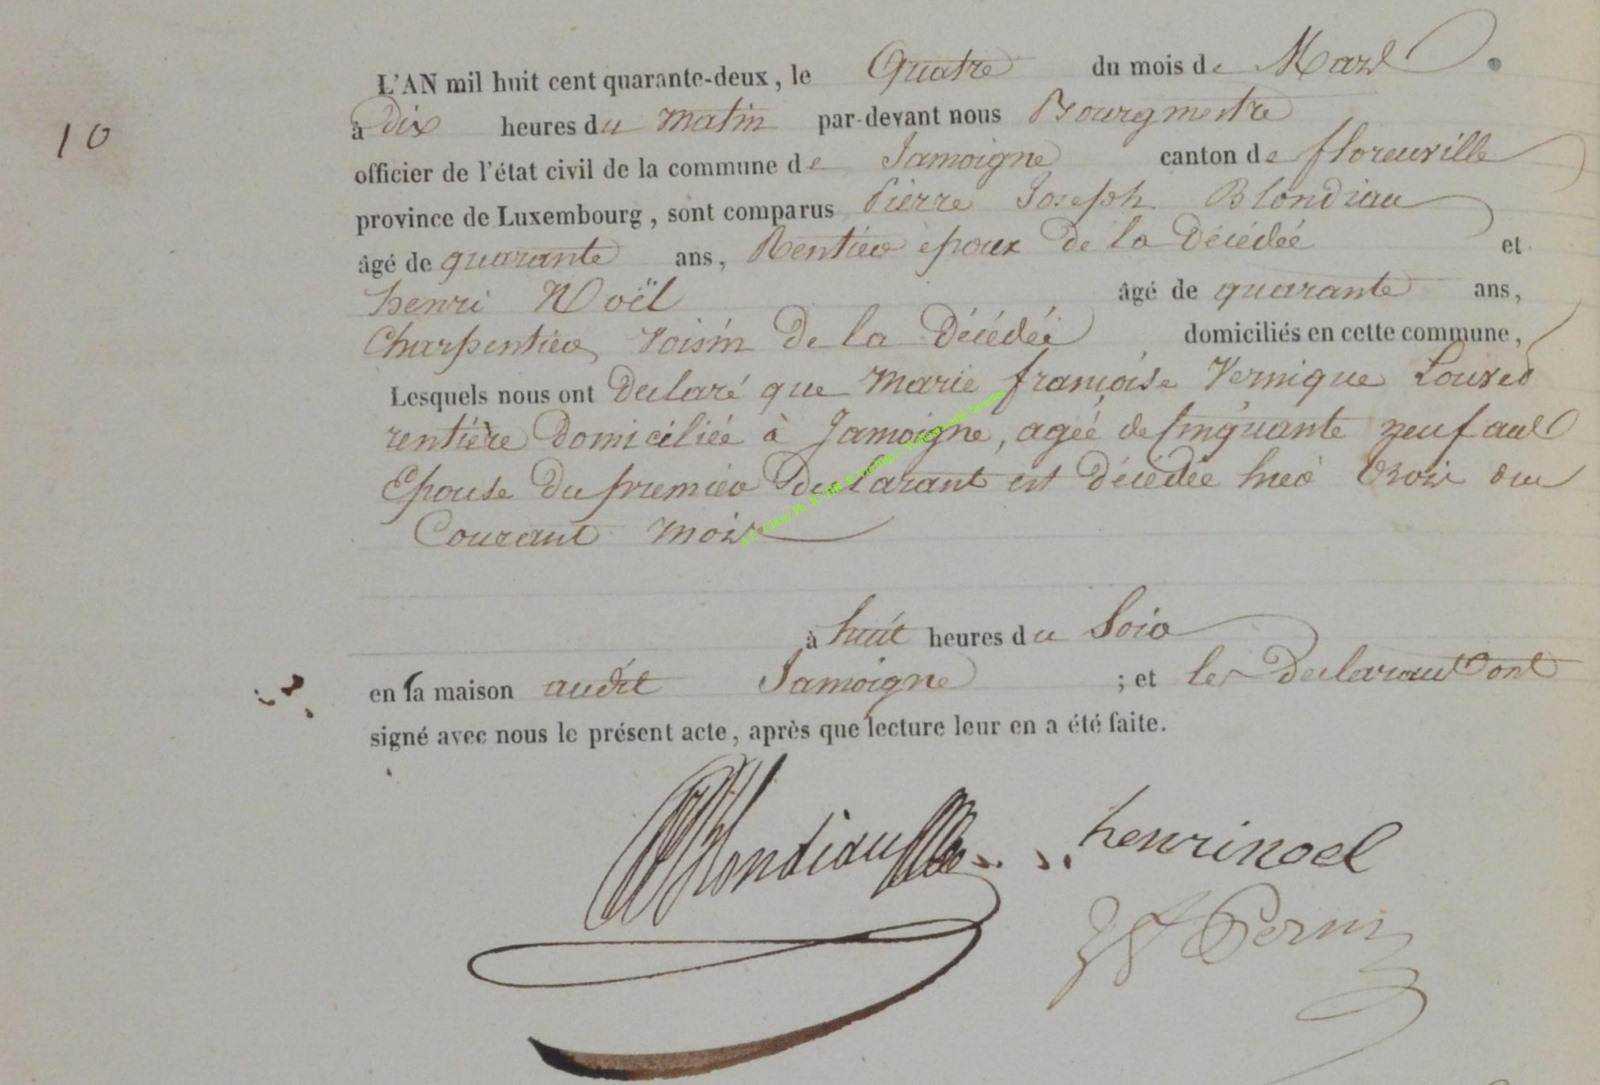 L'AN mil huit cent quarante-deux, le Quatre du mois de Mars
10
à dix heures du matin par-devant nous Bourgmestre
officier de l'état civil de la commune de Jamoigne canton de florenville
province de Luxembourg, sont comparus Pierre Joseph Blondiau
âgé de quarante ans, Rentier époux de la Décédée et
henri Noël âgé de quarante ans,
Charpentier voisin de la Décédée domiciliés en cette commune,
Lesquels nous ont Declaré que marie françoise Vernique
rentière Domiciliée à Jamoigne, agée de sinquante neuf ans
Epouse du premier declarant est décédée hier trois du
Courant mois
à huit heures du Soir
en sa maison audit Jamoigne ; et les Declarant ont
signé avec nous le présent acte, après que lecture leur en a été faite.
Blondiau
henrinoel